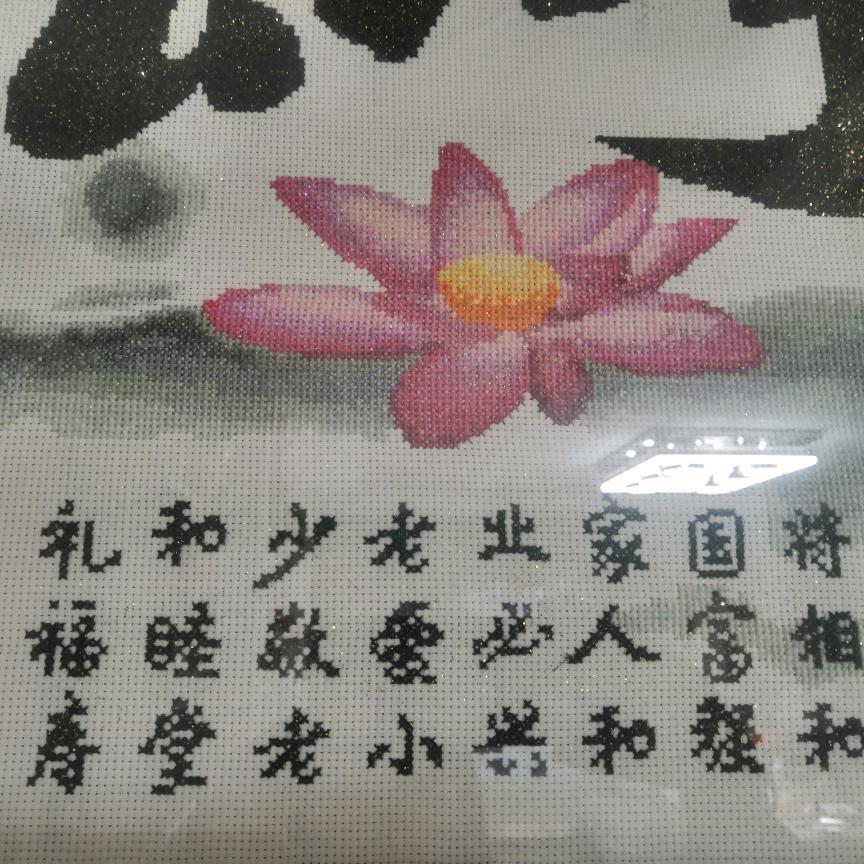 将相和
国富强
家人和
业必兴
老爱小
少敬老
和睦堂
礼福寿